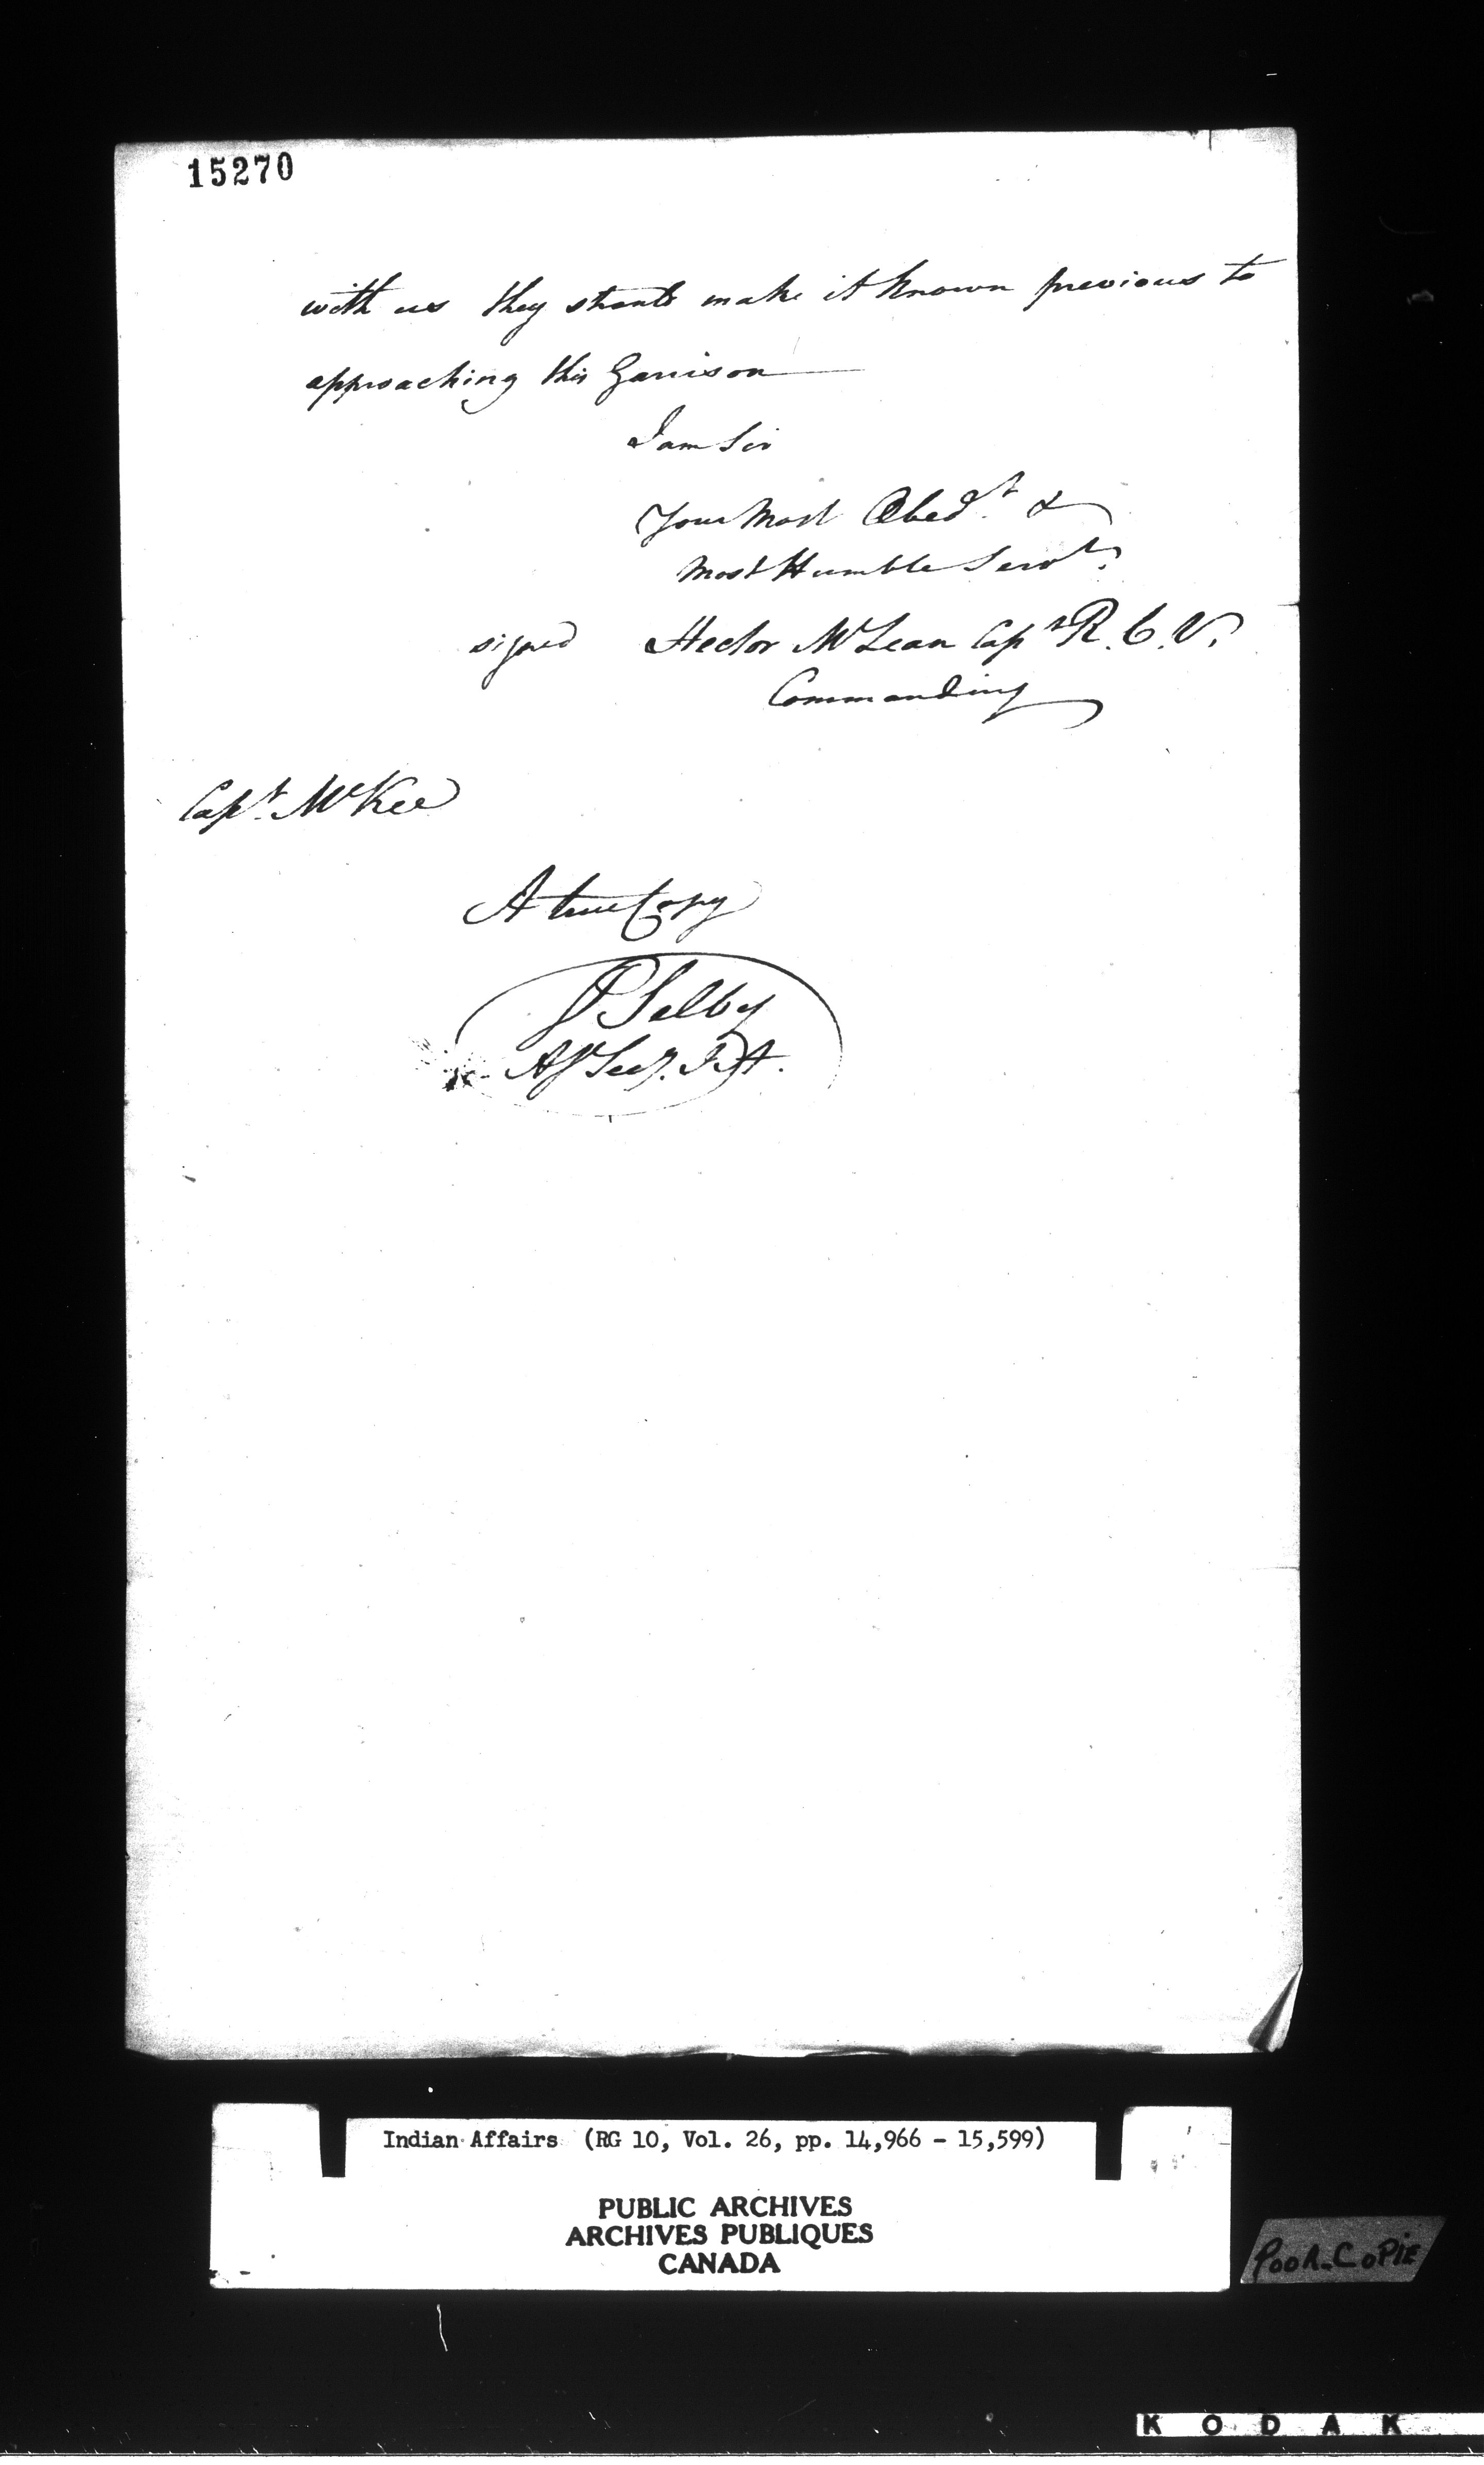 15270
with us they should make it known previous to
approaching this Garrison
I am Sir
Your Most Obedt. &
Most Humble Servt.
signed Hector McLean Capt R. C. V.
Commanding
Capt. McKee
A true Copy
P Selby
A Secy. I A.
Indian Affairs (RG 10, Vol. 26, pp. 14,966 - 15,599)
PUBLIC ARCHIVES
ARCHIVES PUBLIQUES
CANADA
POOR COPIE
KODAK